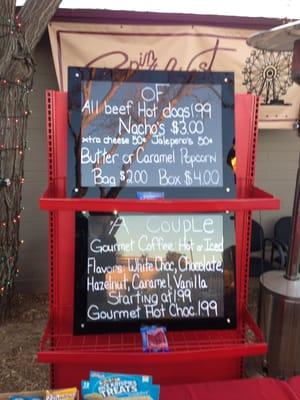 OF
All beef Hot dogs 1.99
Nacho's $3.00
xtra cheese 50¢ Jalepeno's 50¢
Butter or Caramel Popcorn
Bag $2.00 Box $4.00
A COUPLE
Gourmet Coffee Hot or Iced
Flavors: White Choc, Chocolate,
Hazelnut, Caramel, Vanilla
Starting at 1.99
Gourmet Hot Choc. 1.99
TREATS